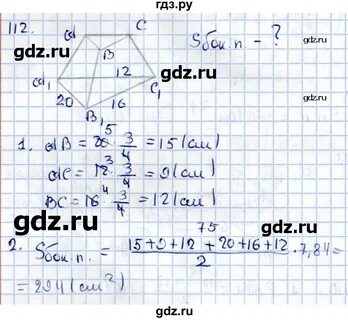 гдз.ру
112.
A
C
B
Sбок.п. - ?
gdz.ru
gdz.ru
A₁
12
C₁
20
16
B₁
1. AB = 20 · 3/4 = 15 (см)
5
AC = 12 · 3/4 = 9 (см)
3
BC = 16 · 3/4 = 12 (см)
4
gdz.ru
gdz.ru
75
2. Sбок.п. = (15+9+12+20+16+12)/2 · 7,84 =
= 294 (см²)
gdz.ru
gdz.ru